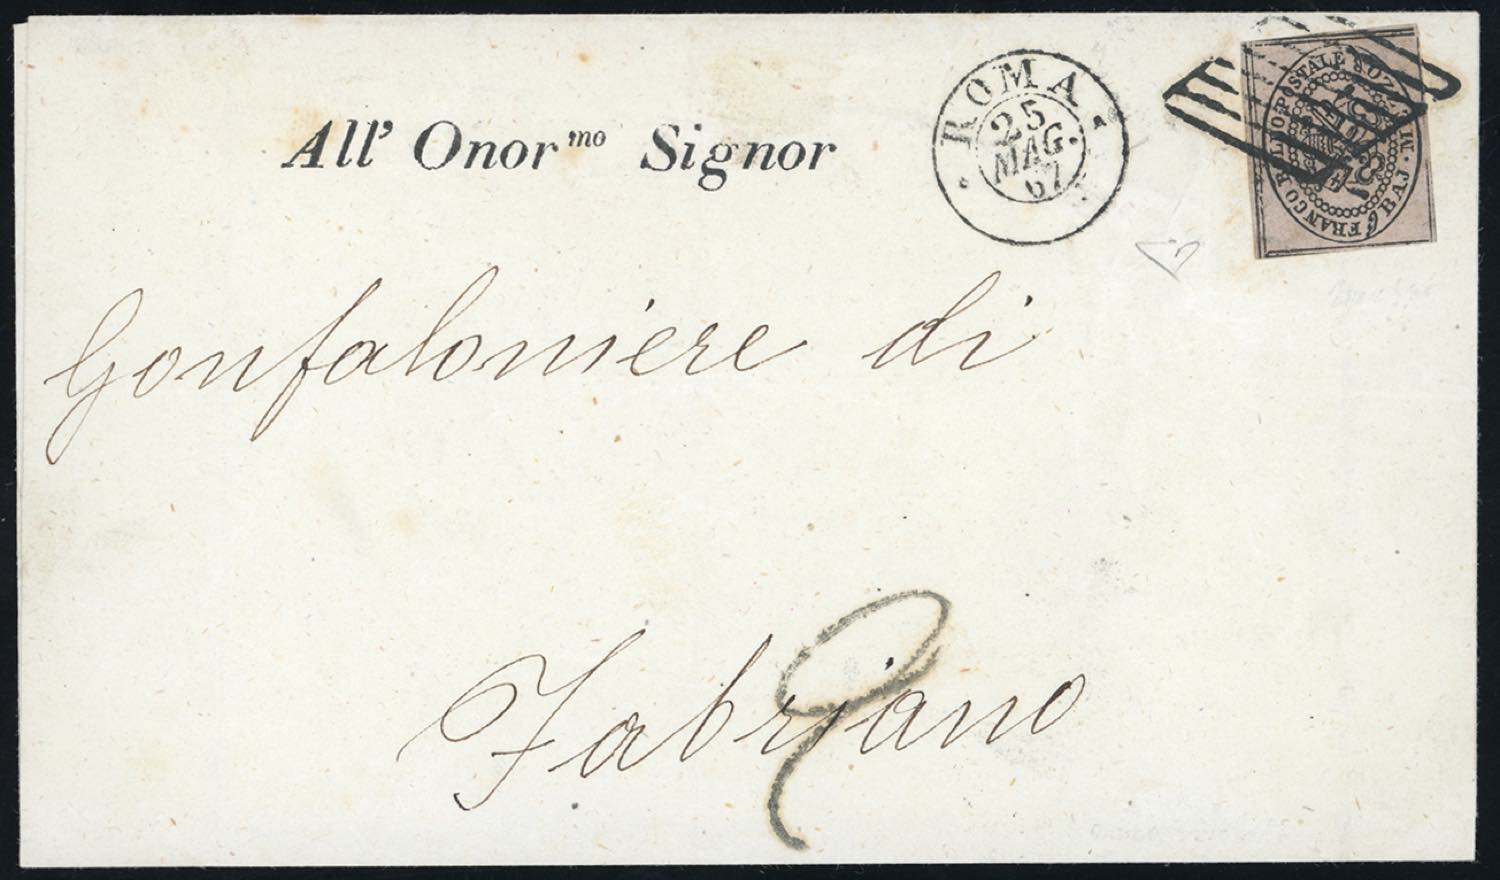 All' Onor mo Signor
ROMA
25
MAG.
67
FRANCO BOLLO POSTALE
BAJ.
Gonfaloniere di
Fabriano